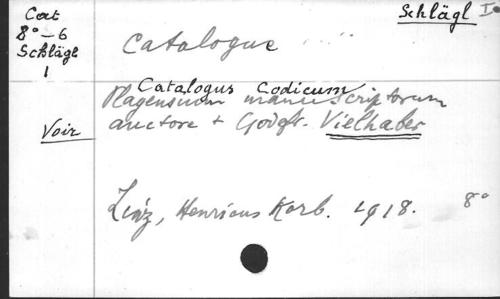 Cat
8°-6
Schlägl
1
Schlägl I
Catalogue
Catalogus Codicum
Plagensium manuscriptorum
Voir
auctore + Godefr. Vielhaber
Linz, Henricus Korb. 1918. 8°